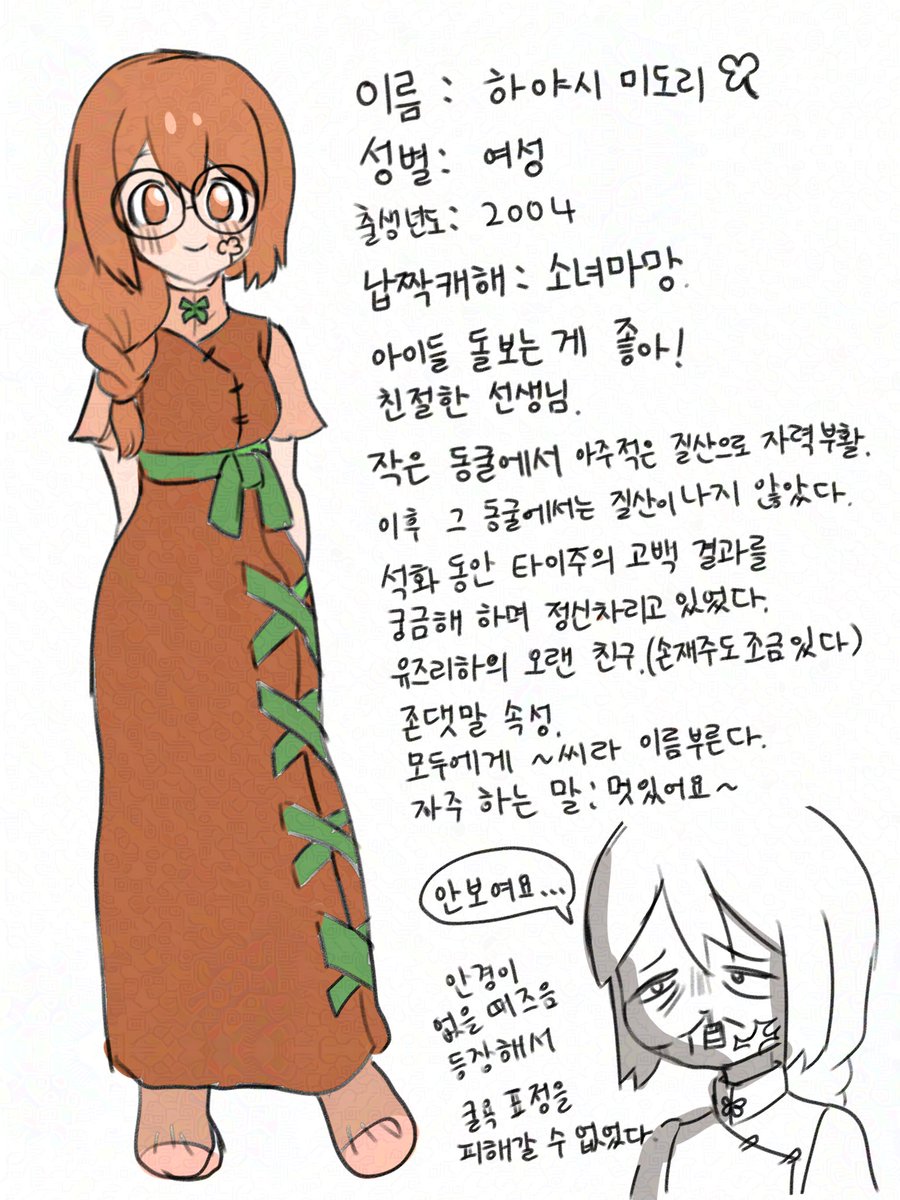 이름 : 하야시 미도리
성별 : 여성
출생년도 : 2004
납짝캐해 : 소녀마망.
아이들 돌보는 게 좋아!
친절한 선생님.
작은 동굴에서 아주적은 질산으로 자력부활.
이후 그 동굴에서는 질산이 나지 않았다.
석화 동안 타이주의 고백 결과를
궁금해 하며 정신차리고 있었다.
유즈리하의 오랜 친구.(손재주도 조금 있다)
존댓말 속성.
모두에게 ~씨라 이름부른다.
자주 하는 말 : 멋있어요~
안보여요...
안경이
없을 때즈음
등장해서
굴욕 표정을
피해갈 수 없었다.